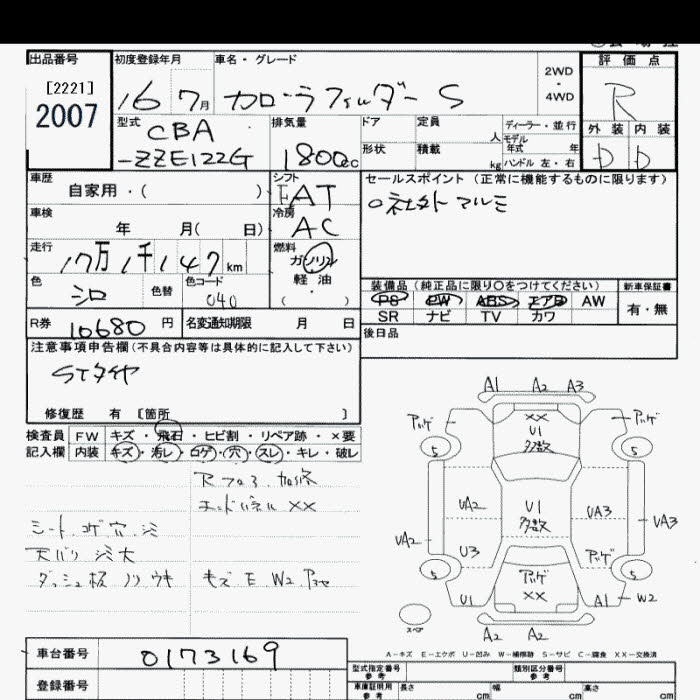 出品番号
[2221]
2007
初度登録年月
16 7月
車名・グレード
カローラフィルダー S
2WD
・
4WD
評価点
R
外装 内装
D D
型式
CBA
-ZZE122G
排気量
1800cc
ドア
定員
人
形状
積載
kg
ディーラー・並行
モデル
年式 年
ハンドル 左・右
車歴
自家用・( )
シフト
FAT
セールスポイント (正常に機能するものに限ります)
○社外アルミ
車検
年 月( 日)
冷房
AC
走行
17万1千147km
燃料
ガソリン
軽油
( ・ )
色
シロ
色替
色コード
040
装備品 (純正品に限り○をつけてください)
PS PW ABS エアB AW
SR ナビ TV カワ
新車保証書
有・無
R券
10680円
名変通知期限 月 日
後日品
注意事項申告欄(不具合内容等は具体的に記入して下さい)
STタイヤ
修復歴 有 [箇所 ]
検査員
記入欄
FW キズ・飛石・ヒビ割・リペア跡・×要
内装 キズ・汚レ・コゲ・穴・スレ・キレ・破レ
Rフロア 加修
エンドパネル XX
シート コゲ 穴 シミ
天バリ シミ大
ダッシュ板 ノリ ウキ
キズ E W2 アゲ
A1 A2 A3
アッゲ
XX
U1
多数
アッゲ
5
5
UA2
U1
多数
UA3
UA3
UA2
U3
アッゲ
5
アッゲ
XX
5
U1
A1
W2
スペア
A2 A2
A-キズ E-エクボ U-凹み W-補修跡 S-サビ C-腐食 XX-交換済
車台番号
0173169
登録番号
型式指定番号
参考
類別区分番号
参考
車庫証明用
参考
長さ
cm
幅
cm
高さ
cm